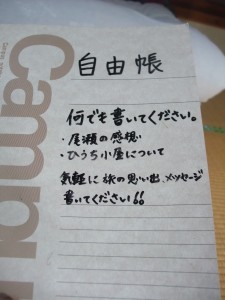 自由帳
何でも書いてください。
・尾瀬の感想
・ひうち小屋について
気軽に旅の思い出、メッセージ
書いてください!!
Campu